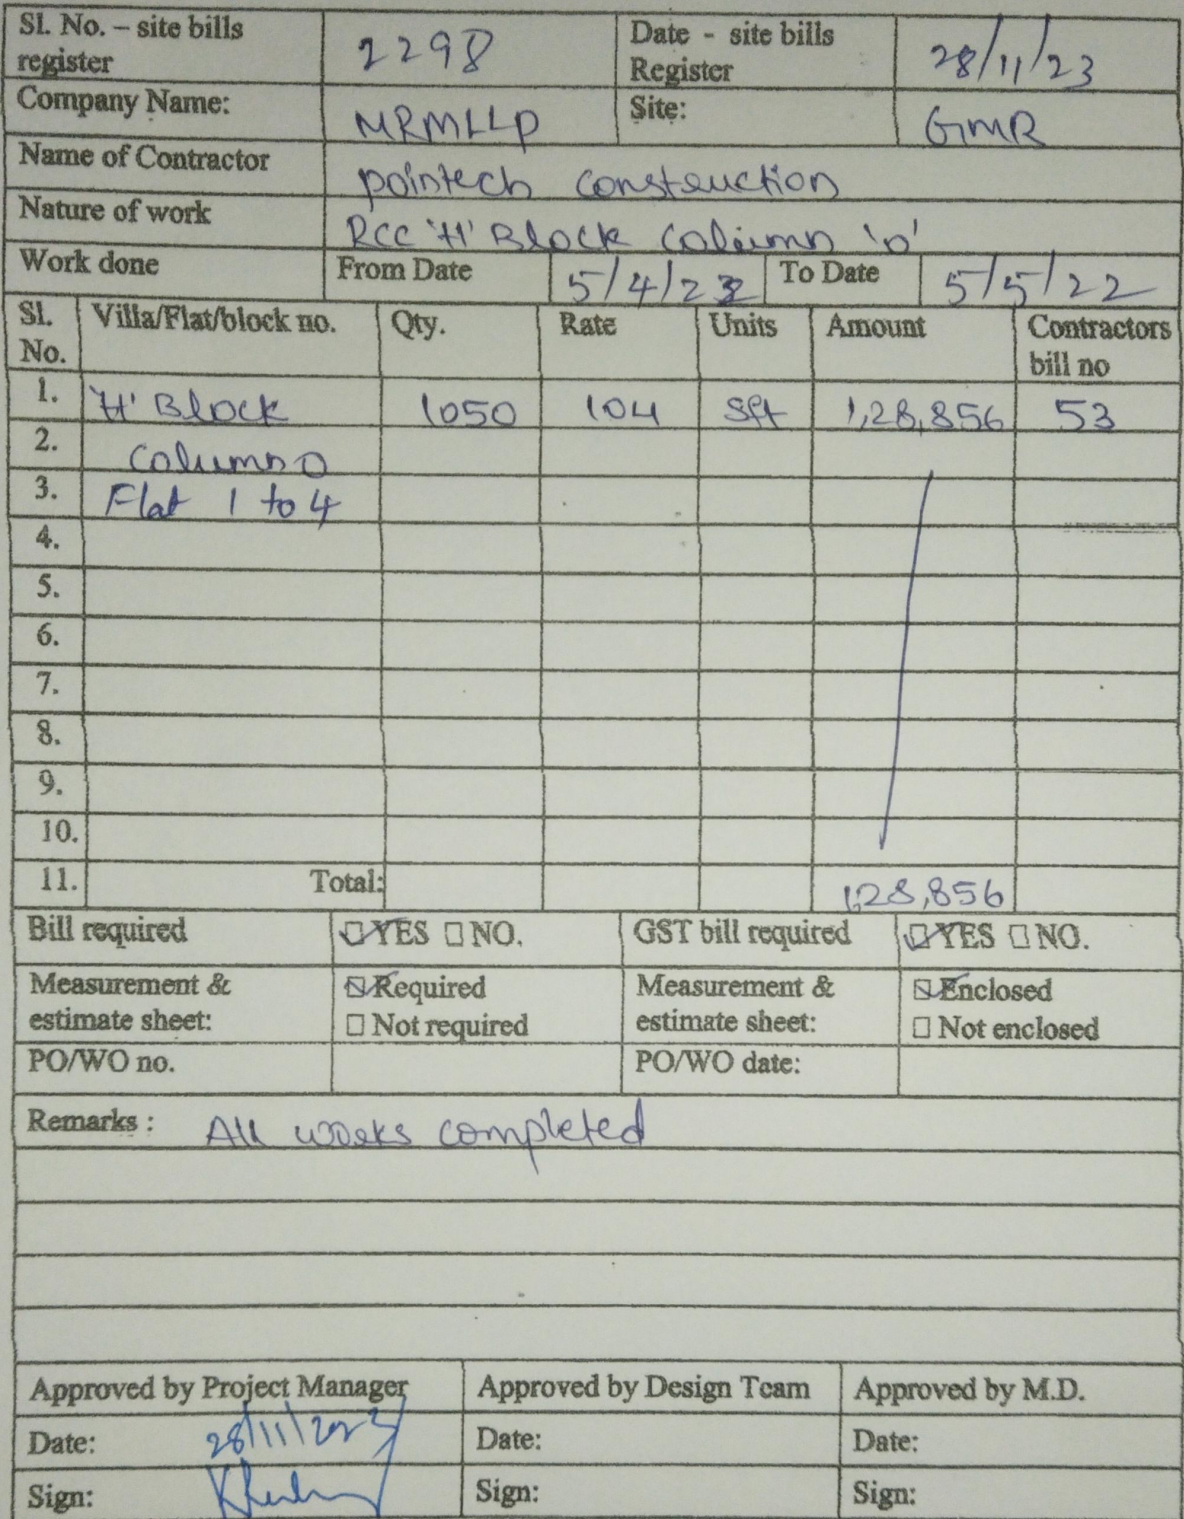 Sl. No. – site bills register 2298 Date - site bills Register 28/11/23
Company Name: MRMLLP Site: GMR
Name of Contractor pointech construction
Nature of work RCC 'H' Block Column 'o'
Work done From Date 5/4/22 To Date 5/5/22
Sl. No. Villa/Flat/block no. Qty. Rate Units Amount Contractors bill no
1. 'H' Block 1050 104 sft 1,28,856 53
2. Column O
3. Flat 1 to 4
4.
5.
6.
7.
8.
9.
10.
11. Total: 1,28,856
Bill required YES NO. GST bill required YES NO.
Measurement & estimate sheet: Required Measurement & estimate sheet: Enclosed
Not required Not enclosed
PO/WO no. PO/WO date:
Remarks : All works completed
Approved by Project Manager Approved by Design Team Approved by M.D.
Date: 28/11/2023 Date: Date:
Sign: Sign: Sign: